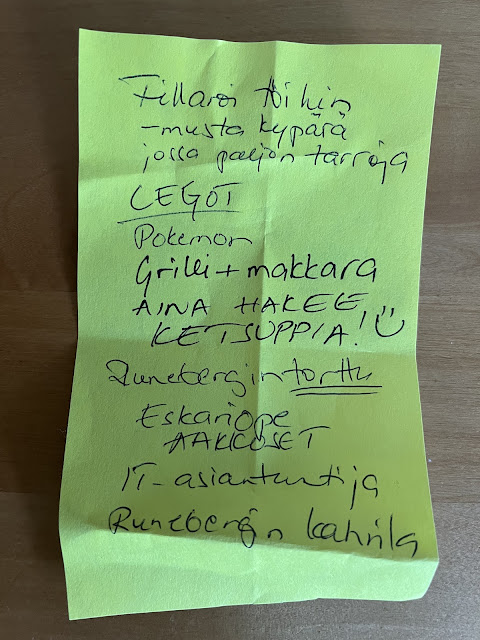 Fillaroi töihin
-musta kypärä
jossa paljon tarroja
LEGOT
Pokemon
Grilli + makkara
AINA HAKEE
KETSUPPIA!
Runebergintorttu
Eskariope
AAKKOSET
IT-asiantuntija
Runebergin kahvila